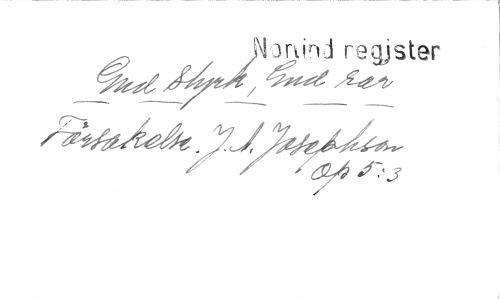 Nonind register
Gud Styrk, Gud
Försakelse. J. A. Josephson
Op 5:3